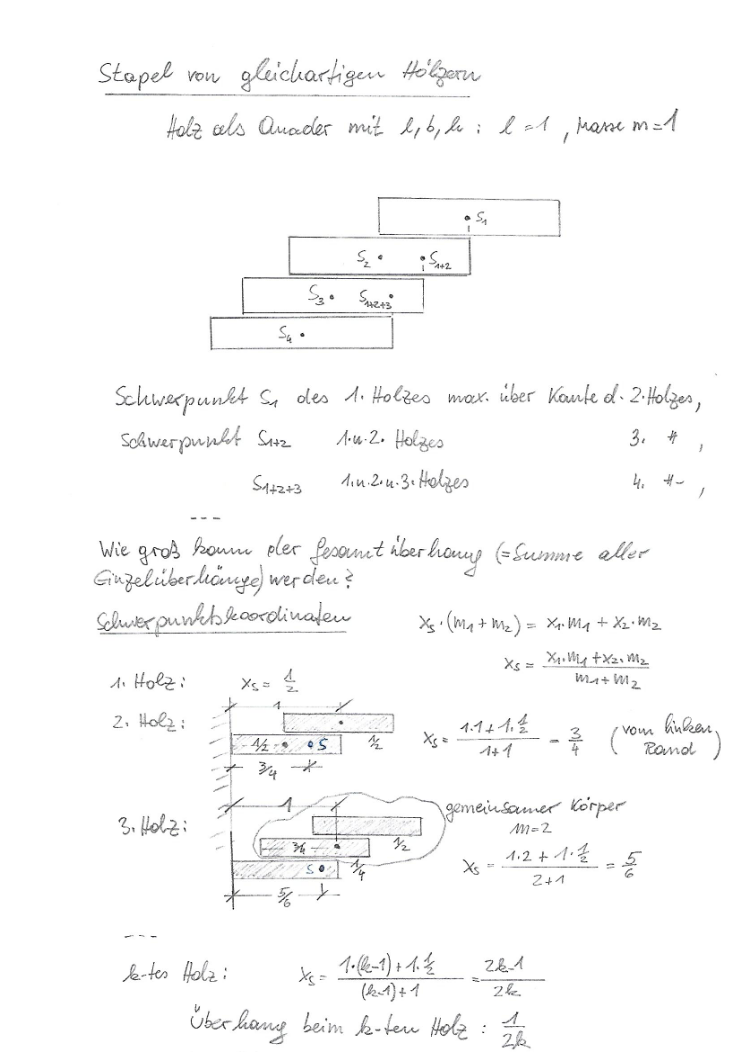 Stapel von gleichartigen Hölzern
Holz als Quader mit l, b, h : l = 1 , Masse m = 1
S₁
S₂ S₁₊₂
S₃ S₁₊₂₊₃
S₄
Schwerpunkt S₁ des 1. Holzes max. über Kante d. 2. Holzes,
Schwerpunkt S₁₊₂ 1. u. 2. Holzes 3. –"– ,
S₁₊₂₊₃ 1. u. 2. u. 3. Holzes 4. –"– ,
---
Wie groß kann der Gesamtüberhang (= Summe aller
Einzelüberhänge) werden?
Schwerpunktskoordinaten xₛ · (m₁ + m₂) = x₁ · m₁ + x₂ · m₂
xₛ = (x₁ · m₁ + x₂ · m₂) / (m₁ + m₂)
1. Holz: xₛ = 1/2
1
2. Holz: 1/2 S 1/2 xₛ = (1·1 + 1·1/2) / (1+1) = 3/4 (vom linken Rand)
3/4
1 gemeinsamer Körper
3. Holz: m=2
3/4 1/2
S 1/4 xₛ = (1·2 + 1·1/2) / (2+1) = 5/6
5/6
---
k-tes Holz: xₛ = (1·(k-1) + 1·1/2) / ((k-1)+1) = (2k-1) / 2k
Überhang beim k-ten Holz : 1/2k